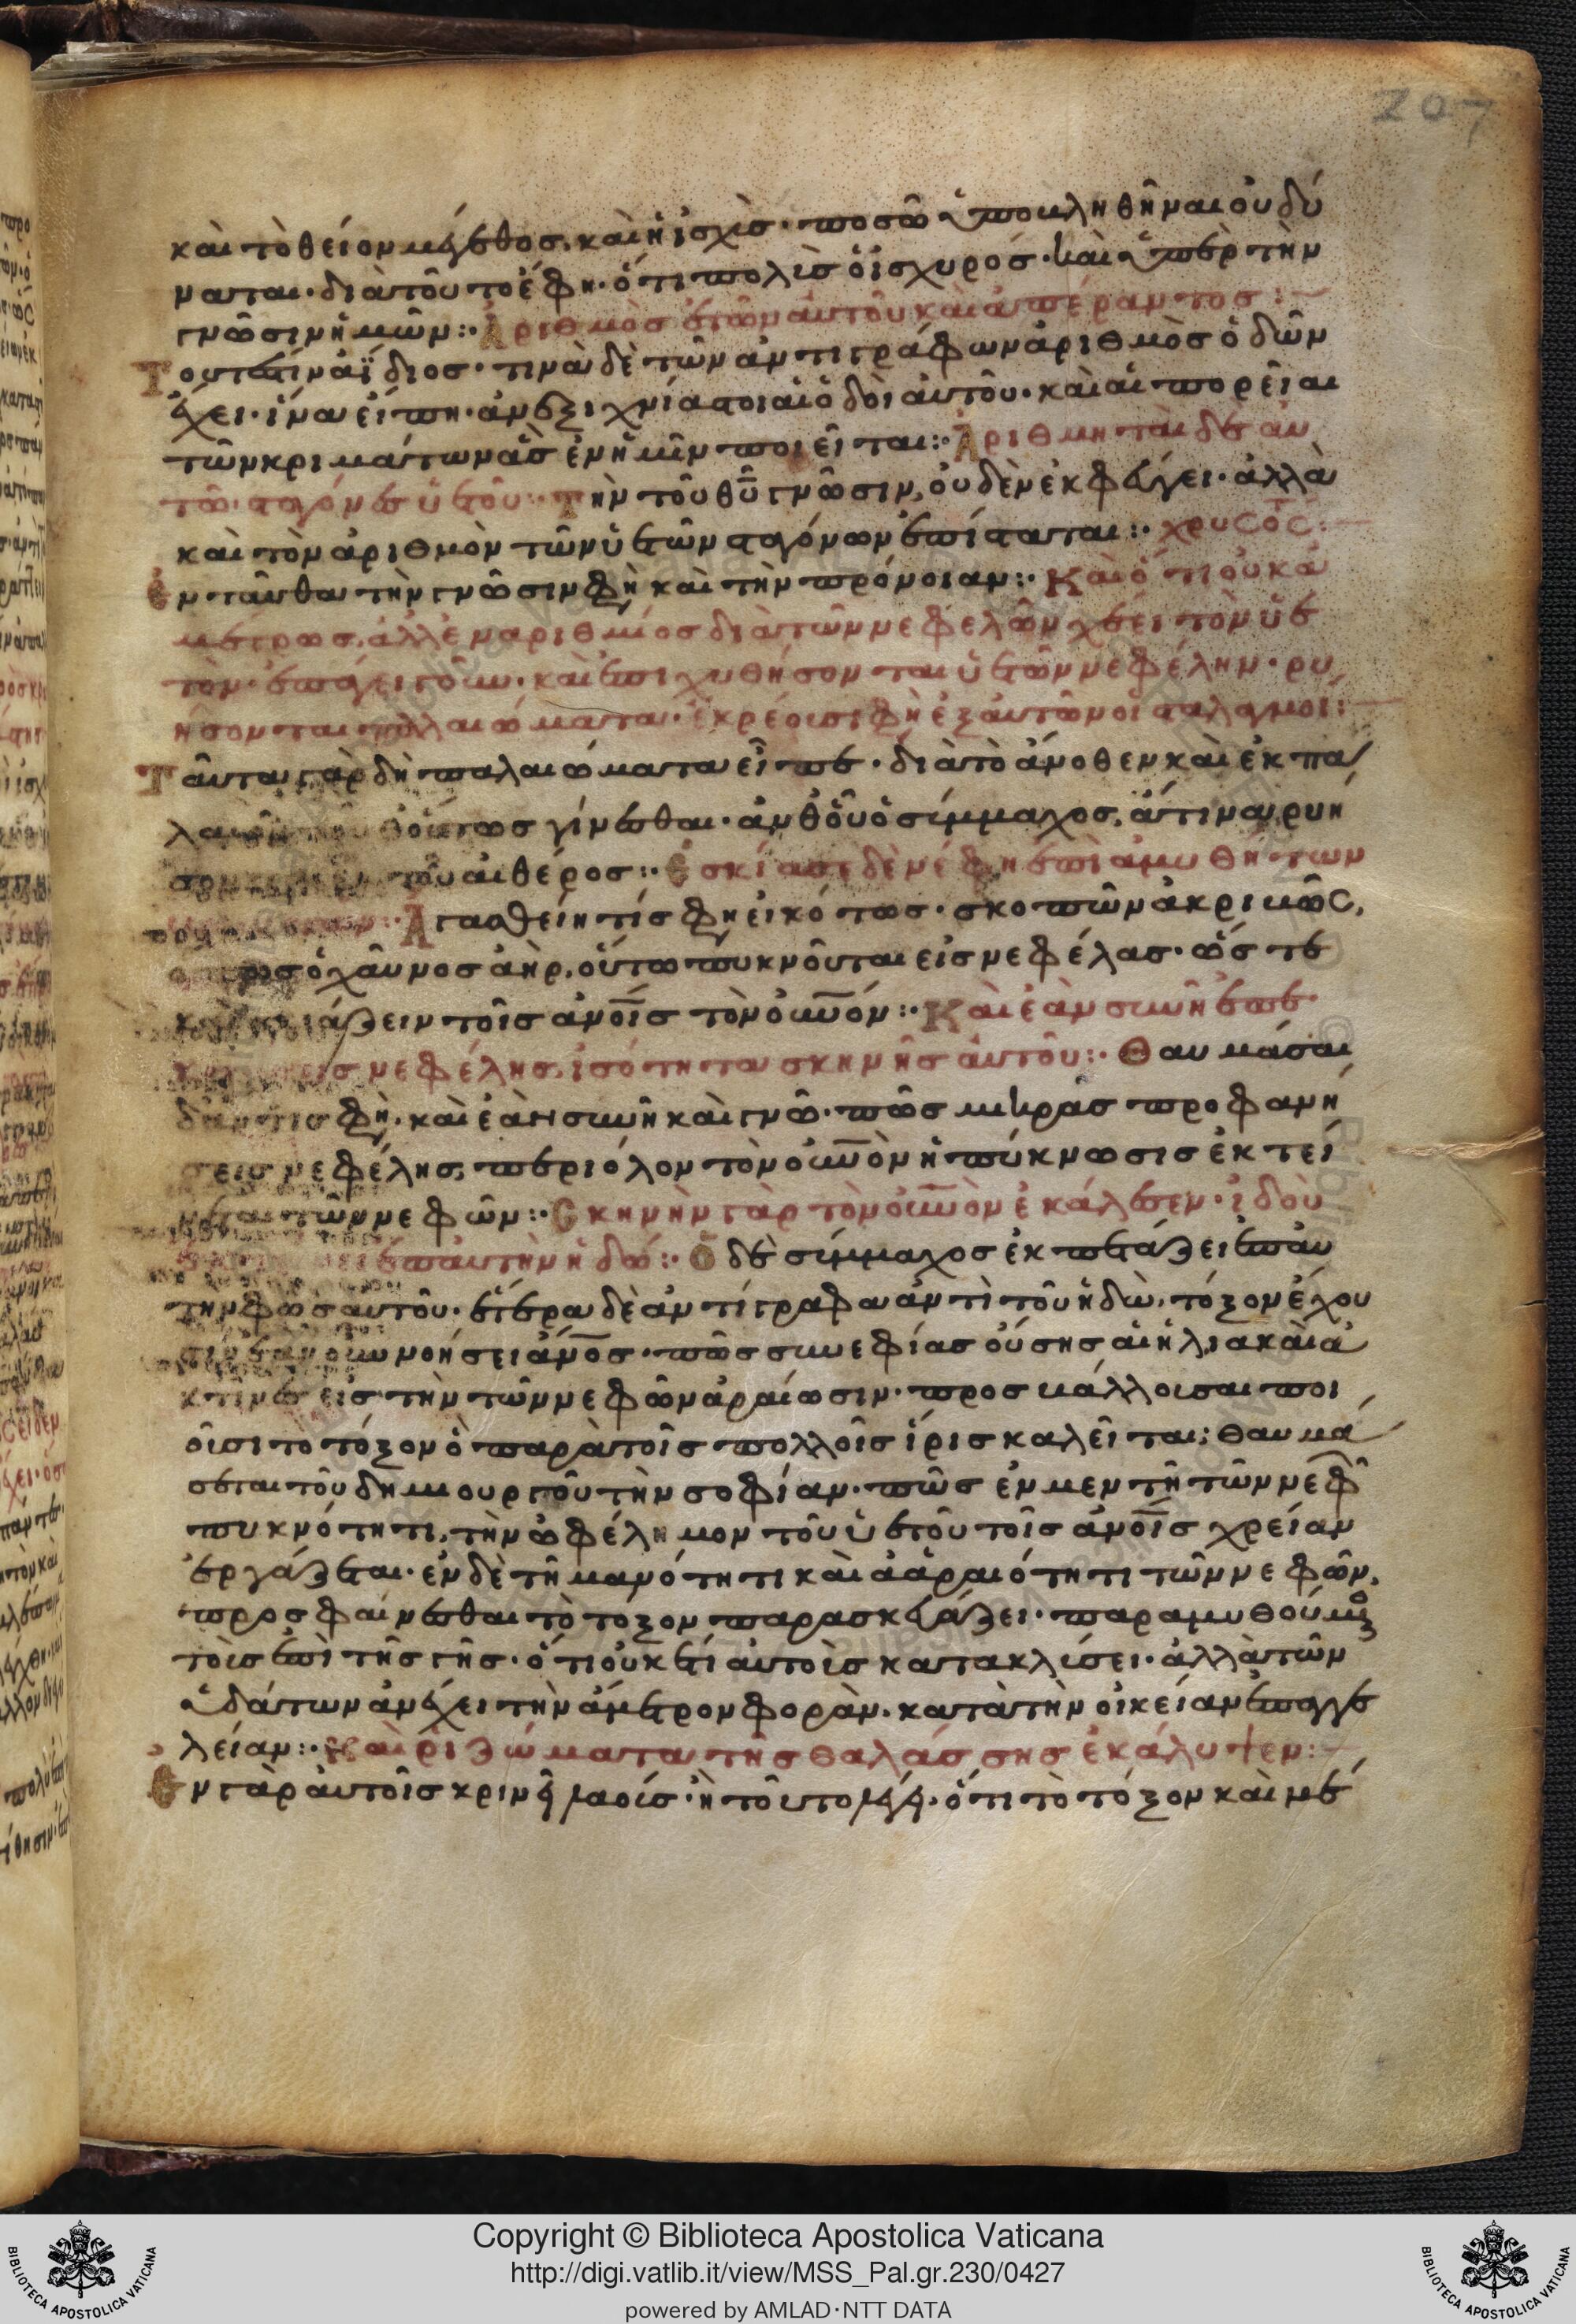 207
καὶ τὸ θεῖον μέγεθος, καὶ ἡ ἰσχὺς· ποσῶ ὑποκληθῆναι οὐ δύ
ναται· διὰ τοῦτο ἔφη· ὅτι πολὺς ὁ ἰσχυρός· καὶ ὑπὲρ τὴν
γνῶσιν ἡμῶν:· Ἀριθμὸς ἐτῶν αὐτοῦ καὶ ἀπέραντος:—
Τουτέστιν ἀΐδιος· τινὰ δὲ τῶν ἀντιγράφων ἀριθμὸς ὁδῶν
ἔχει· ἵνα εἴπη· ἀνεξιχνίαστοι αἱ ὁδοὶ αὐτοῦ· καὶ αἱ πορεῖαι
τῶν κριμάτων ἃς ἐν ἡμῖν ποιεῖται:· Ἀριθμηταὶ δὲ αὐ
τῶ σταγόνες ὑετοῦ:· Τὴν τοῦ θῦ γνῶσιν, οὐδὲν ἐκφεύγει· ἀλλὰ
καὶ τὸν ἀριθμὸν τῶν ὑετῶν σταγόνων ἐπίσταται:· χρυσοστ:—
Ἐνταῦθα τὴν γνῶσιν φὴ καὶ τὴν πρόνοιαν:· Καὶ ὅτι οὐκ ἀ
μέτρως, ἀλλ' ἐναριθμίος διὰ τῶν νεφελῶν χέει τὸν ὑε
τὸν· ἐπάγει γοῦν· καὶ ἐπιχυθήσονται ὑετῶν νεφέλην· ρυ
ήσονται παλαιώματα· ἐκρέουσι φὴ ἐξ αὐτῶν οἱ σταλαγμοί:—
Ταῦτα γὰρ δὴ παλαιώματα εἶπε· διὰ τὸ ἄνοθεν καὶ ἐκ πα
οὕτως γίνεσθαι· ἀνθ' οὗ ὁ σύμμαχος, ἅτινα ρυή
τοῦ αἰθέρος:· Ἐσκίασε δὲ νέφη ἐπὶ ἀμυθήτων
Ἀγασθείη τίς φη εἰκότως· σκοπῶν ἀκριβῶς,
ὁ χαῦνος ἀὴρ, οὕτω πυκνοῦται εἰς νεφέλας· ὥς τε
τοῖς ἀνοῖς τὸν οὐνόν:· Καὶ ἐὰν συνῆ ἐπε
νεφέλης, ἰσότητα σκηνῆς αὐτοῦ:· Θαυμάσαι
φὴ· καὶ ἐὰν συνῆ καὶ γνῶ· πῶς μικρᾶς προφανή
σεις νεφέλης, περιόλον τὸν οὐνὸν ἡ πύκνωσις ἐκτεί
τῶν νεφῶν:· Σκηνὴν γὰρ τὸν οὐνὸν ἐκάλεσεν· ἰδοὺ
ἐπ' αὐτὴν ἡδώ:· Ὁ δὲ σύμμαχος ἐκπετάζει ἐπ' αὐ
τὴν φῶς αὐτοῦ· ἕτερα δὲ ἀντίγραφα ἀντὶ τοῦ ἡδὼ, τόξον ἔχου
νοήσει ἄνος· πῶς συνεφίας οὔσης αἱ ἡλιακαὶ ἀ
κτῖνες εἰς τὴν τῶν νεφῶν ἀραίωσιν· προσβάλλουσαι ποι
οῦσι τὸ τόξον ὃ παρὰ τοῖς πολλοῖς ἶρις καλεῖται; θαυμά
σεται τοῦ δημιουργοῦ τὴν σοφίαν· πῶς ἐν μεν τῆ τῶν νεφ
πυκνότητι, τὴν ὠφέλημον τοῦ ὑετοῦ τοῖς ἀνοῖς χρείαν
ἐργάζεται· ἐν δὲ τῆ μανότητι καὶ ἀἀραιότητι τῶν νεφῶν,
προσφαίνεσθαι τὸ τόξον παρασκευάζει· παραμυθούμ
τοὶς ἐπὶ τῆς γῆς· ὅτι οὐκ ἔτι αὐτοὶς κατακλύσει· ἀλλὰ τῶν
ὑδάτων ἀνέχει τὴν ἄμετρον φορὰν· κατὰ τὴν οἰκείαν ἐπαγγε
λείαν:· Καὶ ριζώματα τῆς θαλάσσης ἐκάλυψεν:—
Ἐν γὰρ αὐτοῖς κρινεῖ λαούς· ἢ τοῦτο λέγει· ὅτι τὸ τόξον καὶ με
Copyright © Biblioteca Apostolica Vaticana
http://digi.vatlib.it/view/MSS_Pal.gr.230/0427
powered by AMLAD·NTT DATA
BIBLIOTECA APOSTOLICA VATICANA
BIBLIOTECA APOSTOLICA VATICANA